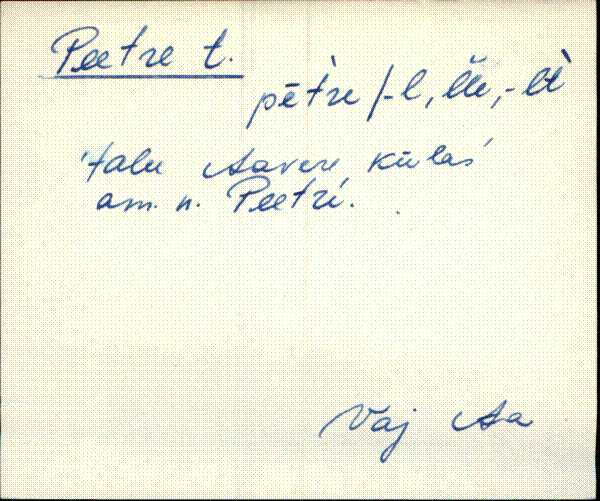 Peetre t.
pētre /-l, -lle, -lt
talu Aavere külas
am. n. Peetri.
Vaj Aa